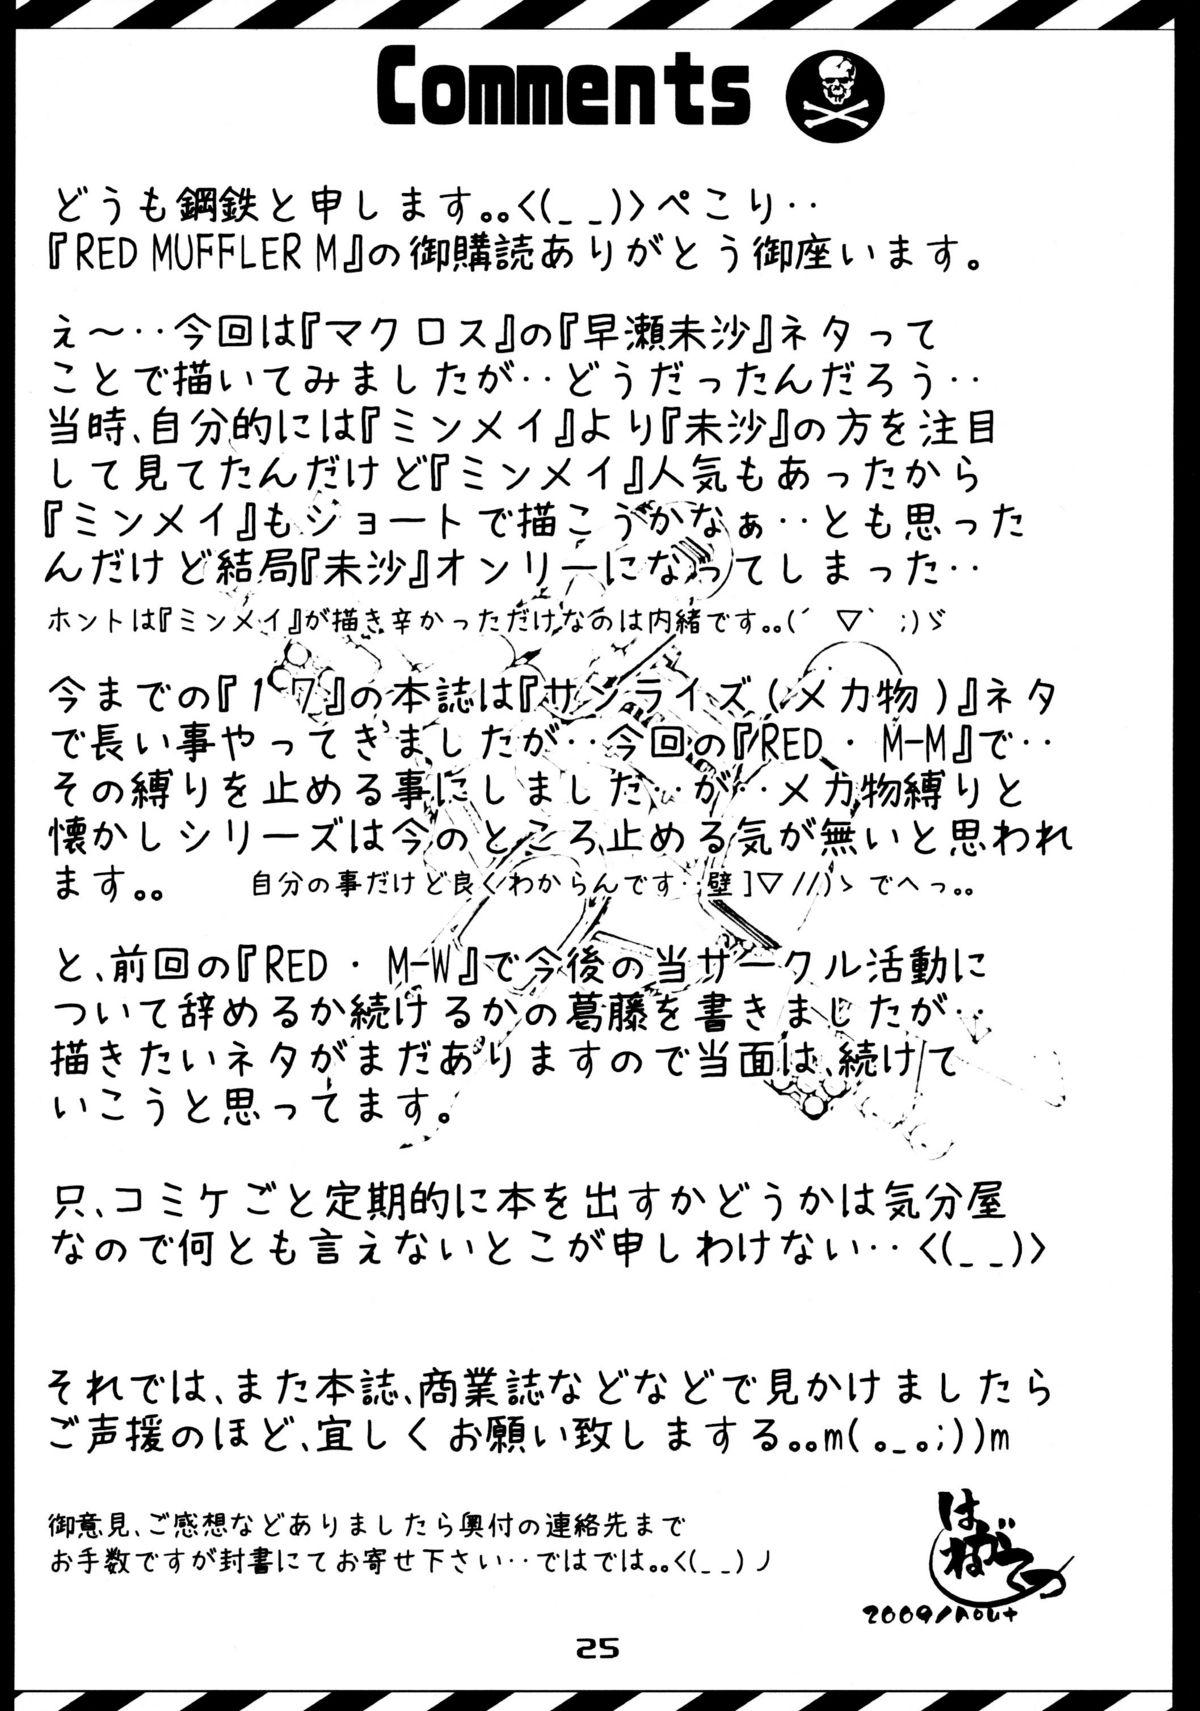 Comments
どうも鋼鉄と申します。。<(_ _)>ぺこり‥
『RED MUFFLER M』の御購読ありがとう御座います。
え～‥今回は『マクロス』の『早瀬未沙』ネタって
ことで描いてみましたが‥どうだったんだろう‥
当時、自分的には『ミンメイ』より『未沙』の方を注目
して見てたんだけど『ミンメイ』人気もあったから
『ミンメイ』もショートで描こうかなぁ‥とも思った
んだけど結局『未沙』オンリーになってしまった‥
ホントは『ミンメイ』が描き辛かっただけなのは内緒です。。(´▽｀;)ゞ
今までの『17』の本誌は『サンライズ(メカ物)』ネタ
で長い事やってきましたが‥今回の『RED・M-M』で‥
その縛りを止める事にしました‥が‥メカ物縛りと
懐かしシリーズは今のところ止める気が無いと思われ
ます。。 自分の事だけど良くわからんです‥壁]▽//)ゝでへっ。。
と、前回の『RED・M-W』で今後の当サークル活動に
ついて辞めるか続けるかの葛藤を書きましたが‥
描きたいネタがまだありますので当面は、続けて
いこうと思ってます。
只、コミケごと定期的に本を出すかどうかは気分屋
なので何とも言えないとこが申しわけない‥<(_ _)>
それでは、また本誌、商業誌などなどで見かけましたら
ご声援のほど、宜しくお願い致しまする。。m(。_。;))m
御意見、ご感想などありましたら奥付の連絡先まで
お手数ですが封書にてお寄せ下さい‥ではでは。。<(_ _)ノ
はがねてつ
2009/Aout
25